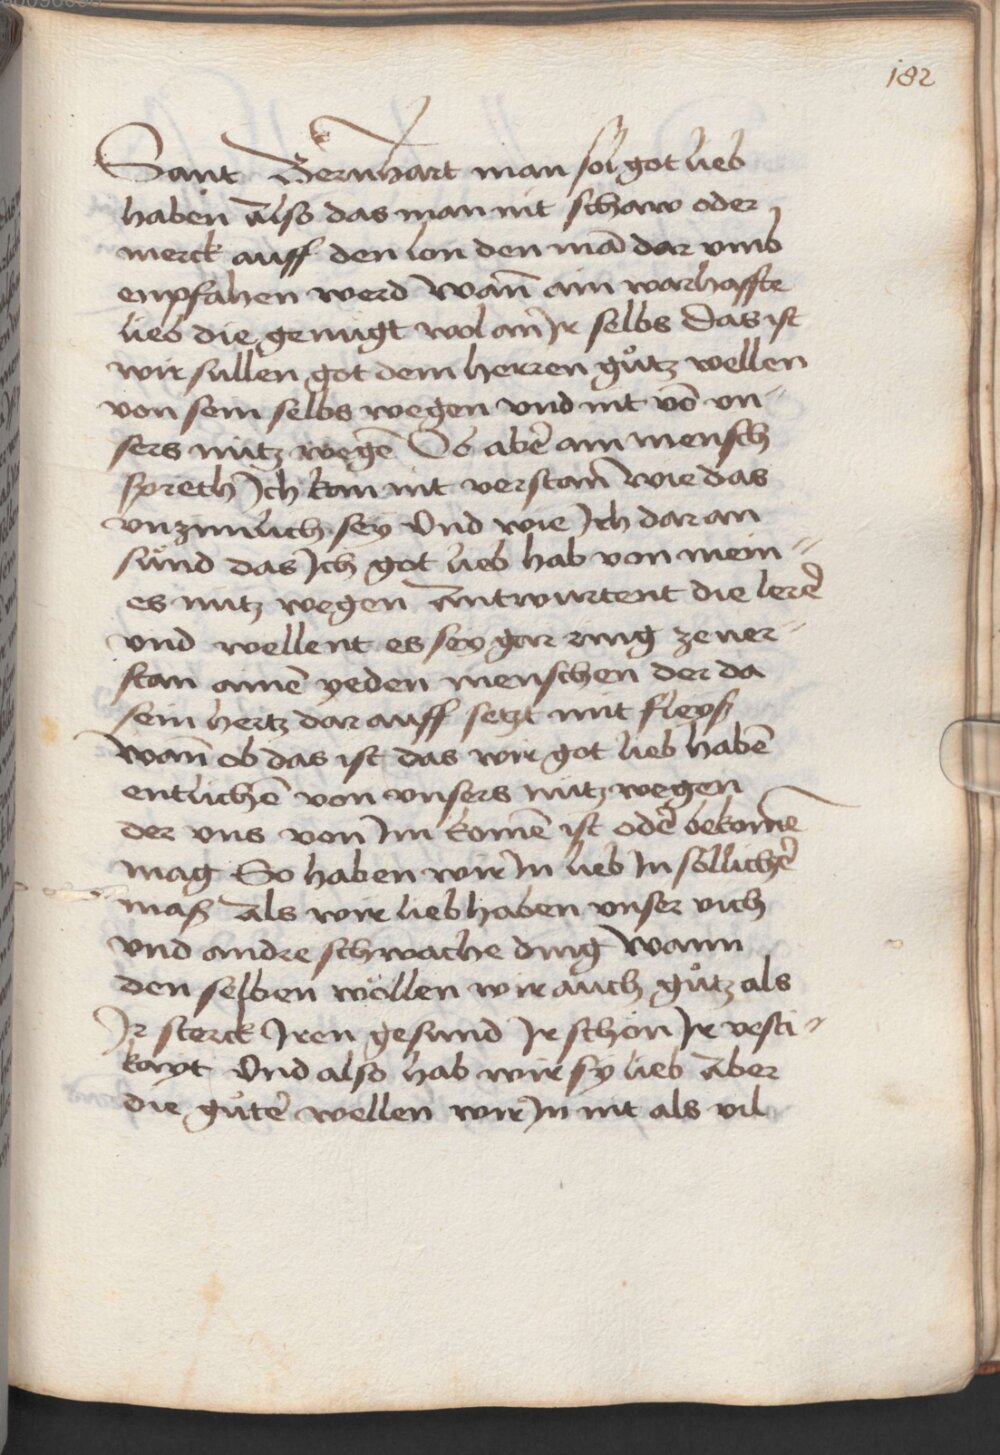 182
Sant Bernhart man sol got lieb
haben Also das man nit schaw oder
merck auff den lon den mā dar vmb
enpfahen werd Wan̄ ain warhaffte
lieb die genügt wol an Jr selbs Das ist
wir sullen got dem herren gůtz wellen
von sein selbs wegen vnd nit vō vn-
sers nutz wegē Ob aber̄ ain mensch
sprech Jch kan nit verstan̄ wie das
vnzimlich sey Vnd wie Jch dar an
sünd das Jch got lieb hab von mein-
es nutz wegen Antwurtent die lerer̄
vnd wellent es sey gar ring zever-
stan ainē yeden menschen der da
sein hertz dar auff setzt mit fleyß
Wan̄ ob das ist das wir got lieb habē
entlichē von vnsers nutz wegen
der vns von Jm komē ist oder̄ bekomē
mag So haben wir Jn lieb Jn söllicher̄
maß Als wir lieb haben vnser vich
vnd andre schwache ding Wann
den selben wöllen wir auch gůtz als
Jr sterck Jren gesund Jr schön Jr vesti-
kayt Vnd also hab wir sy lieb Aber
die gůter̄ wellen wir Jn nit als vil